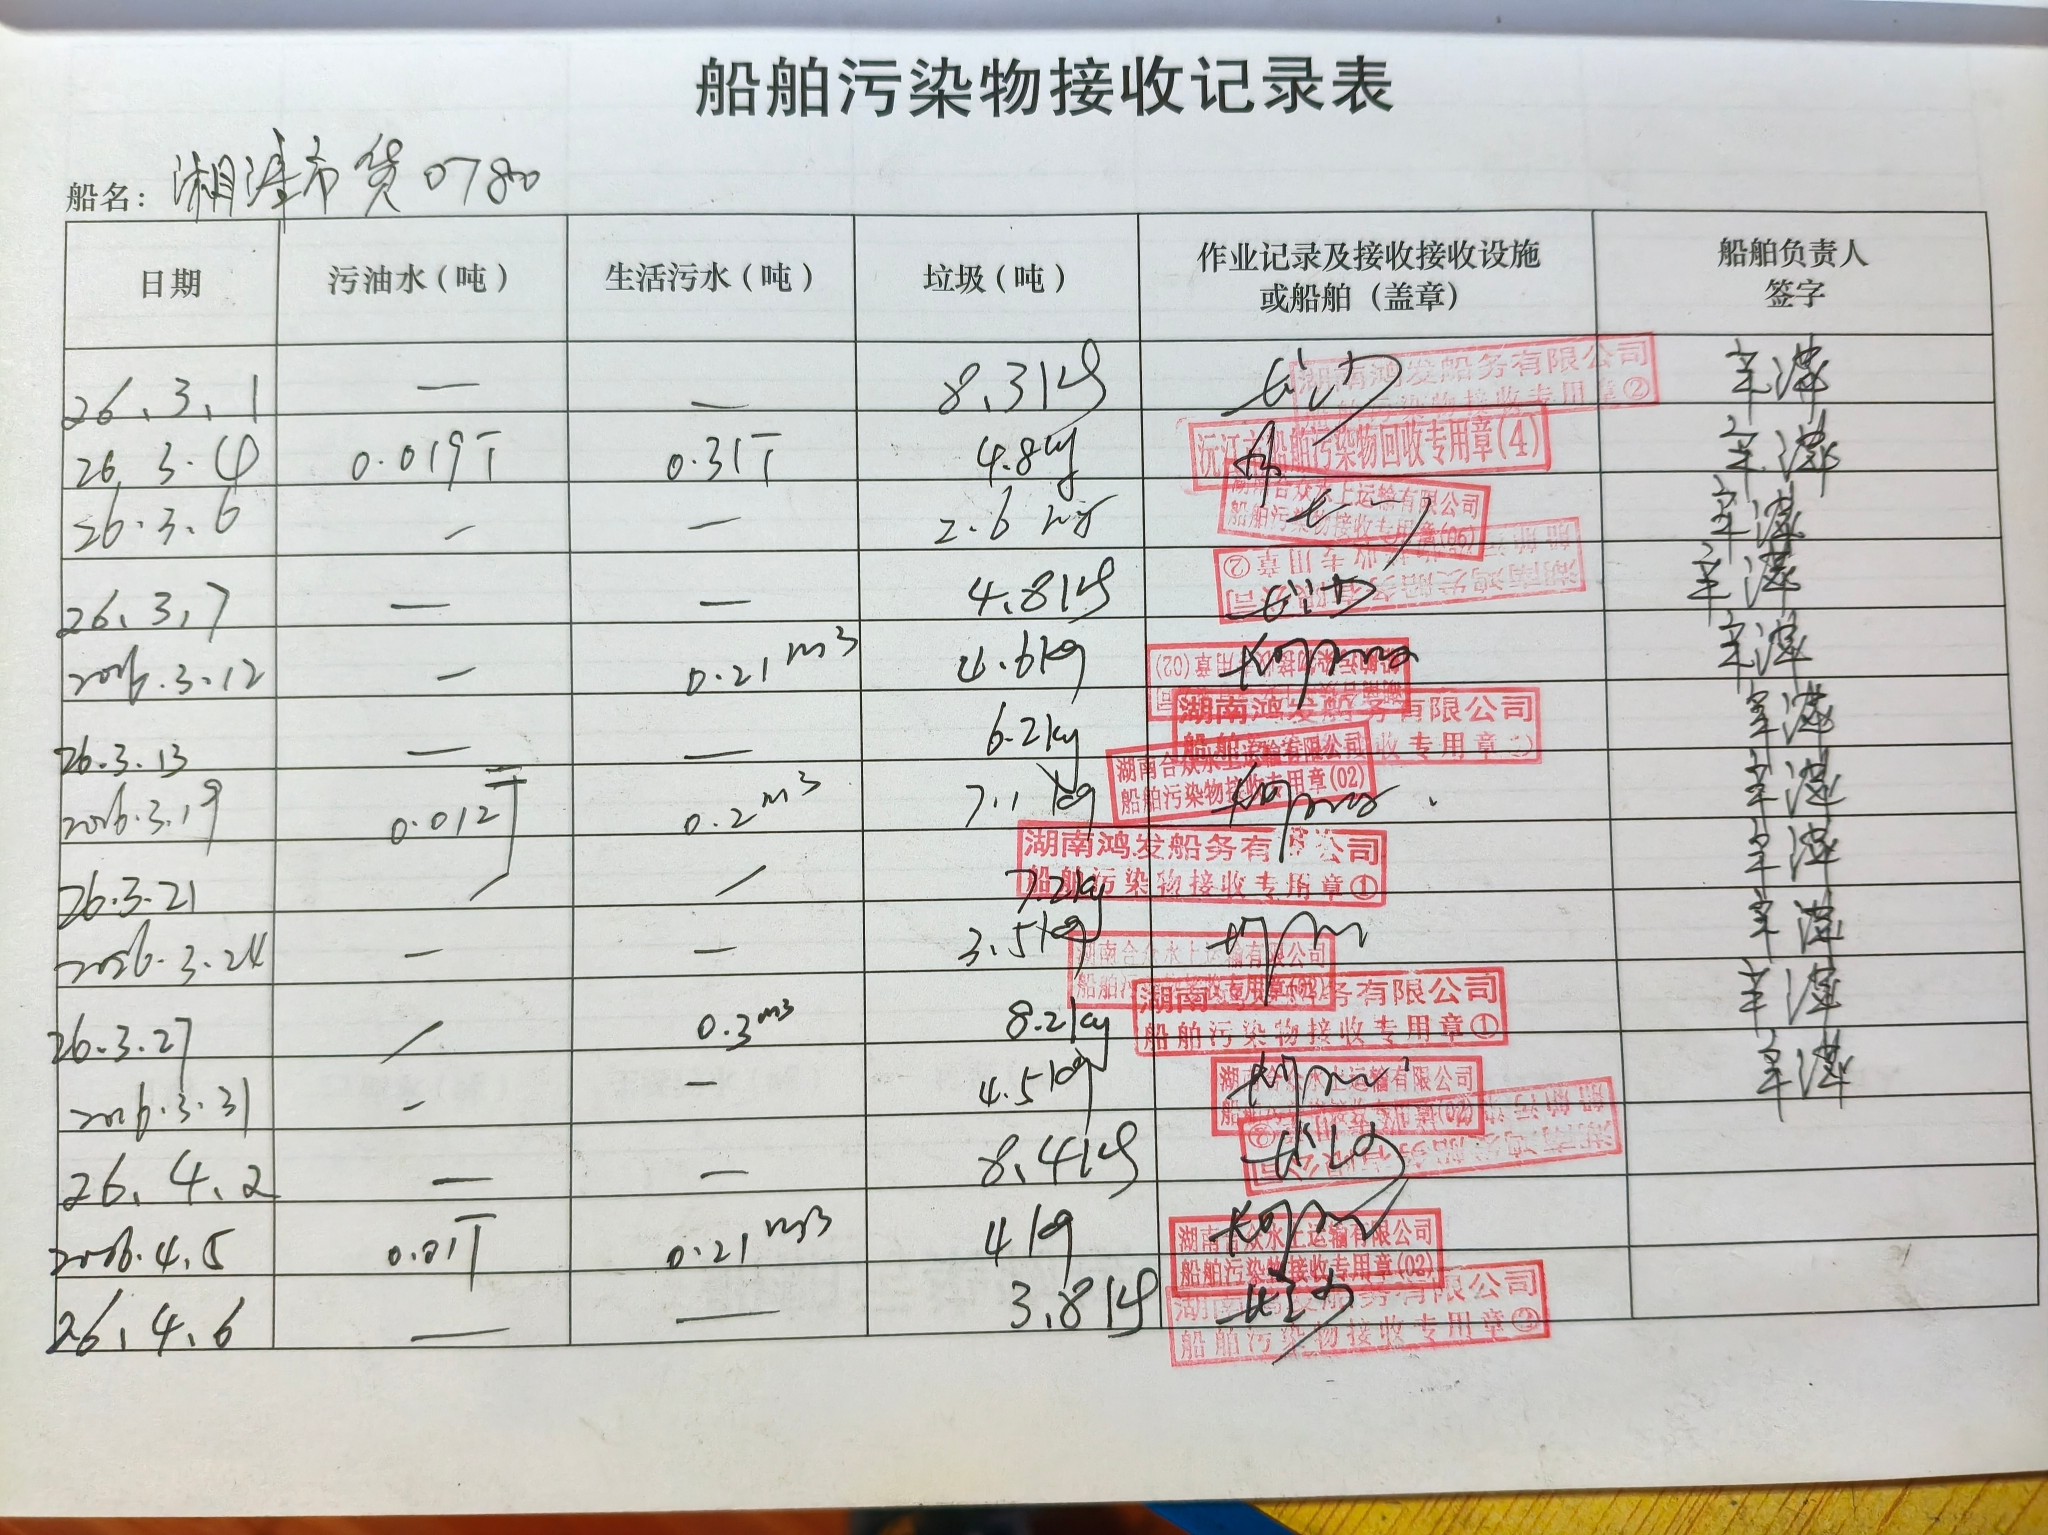 船舶污染物接收记录表
船名：湘津市货0780
日期 污油水（吨） 生活污水（吨） 垃圾（吨） 作业记录及接收接收设施或船舶（盖章） 船舶负责人签字
26.3.1 — — 8.3kg 湖南鸿发船务有限公司 船舶污染物接收专用章②
26.3.4 0.019T 0.31T 4.8kg 沅江市船舶污染物回收专用章(4)
26.3.6 — — 2.6kg 湖南合众水上运输有限公司 船舶污染物接收专用章(06)
26.3.7 — — 4.8kg 湖南鸿发船务有限公司 船舶污染物接收专用章②
2026.3.12 — 0.21m³ 4.6kg 湖南合众水上运输有限公司 船舶污染物接收专用章(02)
26.3.13 — — 6.2kg 湖南鸿发船务有限公司 船舶污染物接收专用章①
2026.3.19 0.012T 0.2m³ 7.1kg 湖南合众水上运输有限公司 船舶污染物接收专用章(02)
26.3.21 / / 7.2kg 湖南鸿发船务有限公司 船舶污染物接收专用章①
2026.3.24 — — 3.5kg 湖南合众水上运输有限公司 船舶污染物接收专用章(02)
26.3.27 / 0.3m³ 8.2kg 湖南鸿发船务有限公司 船舶污染物接收专用章①
2026.3.31 — — 4.5kg 湖南合众水上运输有限公司 船舶污染物接收专用章(02)
26.4.2 — — 8.4kg 湖南鸿发船务有限公司 船舶污染物接收专用章②
2026.4.5 0.01T 0.21m³ 4kg 湖南合众水上运输有限公司 船舶污染物接收专用章(02)
26.4.6 — — 3.8kg 湖南鸿发船务有限公司 船舶污染物接收专用章②